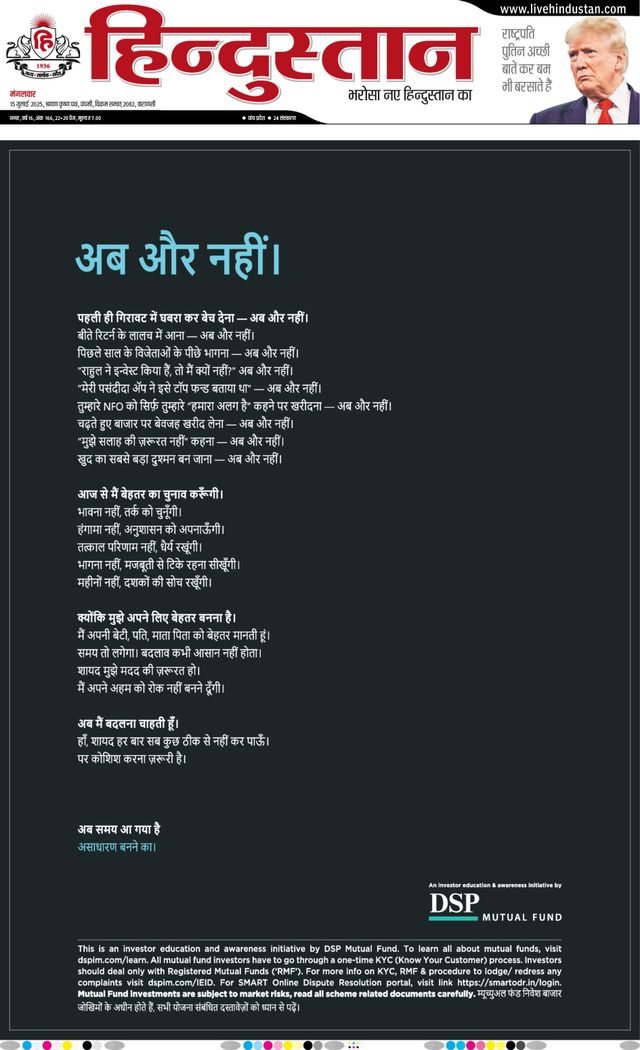 www.livehindustan.com
हिन्दुस्तान
हि
1936
सत्य - सार्थक - संदेश
भरोसा नए हिन्दुस्तान का
राष्ट्रपति
पुतिन अच्छी
बातें कर बम
भी बरसाते हैं
मंगलवार
15 जुलाई 2025, श्रावण कृष्ण पक्ष, पंचमी, विक्रम सम्वत् 2082, वाराणसी
नगर, वर्ष 16, अंक 166, 22+20 पेज, मूल्य ₹ 7.00
● पांच प्रदेश ● 24 संस्करण
अब और नहीं।
पहली ही गिरावट में घबरा कर बेच देना — अब और नहीं।
बीते रिटर्न के लालच में आना — अब और नहीं।
पिछले साल के विजेताओं के पीछे भागना — अब और नहीं।
"राहुल ने इन्वेस्ट किया हैं, तो मैं क्यों नहीं?" अब और नहीं।
"मेरी पसंदीदा ॲप ने इसे टॉप फन्ड बताया था" — अब और नहीं।
तुम्हारे NFO को सिर्फ़ तुम्हारे "हमारा अलग है" कहने पर खरीदना — अब और नहीं।
चढ़ते हुए बाजार पर बेवजह खरीद लेना — अब और नहीं।
"मुझे सलाह की ज़रूरत नहीं" कहना — अब और नहीं।
खुद का सबसे बड़ा दुश्मन बन जाना — अब और नहीं।
आज से मैं बेहतर का चुनाव करूँगी।
भावना नहीं, तर्क को चुनूँगी।
हंगामा नहीं, अनुशासन को अपनाऊँगी।
तत्काल परिणाम नहीं, धैर्य रखूंगी।
भागना नहीं, मजबूती से टिके रहना सीखूँगी।
महीनों नहीं, दशकों की सोच रखूँगी।
क्योंकि मुझे अपने लिए बेहतर बनना है।
मैं अपनी बेटी, पति, माता पिता को बेहतर मानती हूं।
समय तो लगेगा। बदलाव कभी आसान नहीं होता।
शायद मुझे मदद की ज़रूरत हो।
मैं अपने अहम को रोक नहीं बनने दूँगी।
अब मैं बदलना चाहती हूँ।
हाँ, शायद हर बार सब कुछ ठीक से नहीं कर पाऊँ।
पर कोशिश करना ज़रूरी है।
अब समय आ गया है
असाधारण बनने का।
An investor education & awareness initiative by
DSP
MUTUAL FUND
This is an investor education and awareness initiative by DSP Mutual Fund. To learn all about mutual funds, visit
dspim.com/learn. All mutual fund investors have to go through a one-time KYC (Know Your Customer) process. Investors
should deal only with Registered Mutual Funds ('RMF'). For more info on KYC, RMF & procedure to lodge/ redress any
complaints visit dspim.com/IEID. For SMART Online Dispute Resolution portal, visit link https://smartodr.in/login.
Mutual Fund Investments are subject to market risks, read all scheme related documents carefully. म्यूच्युअल फंड निवेश बाजार
जोखिमों के अधीन होते हैं, सभी योजना संबंधित दस्तावेज़ों को ध्यान से पढ़ें।